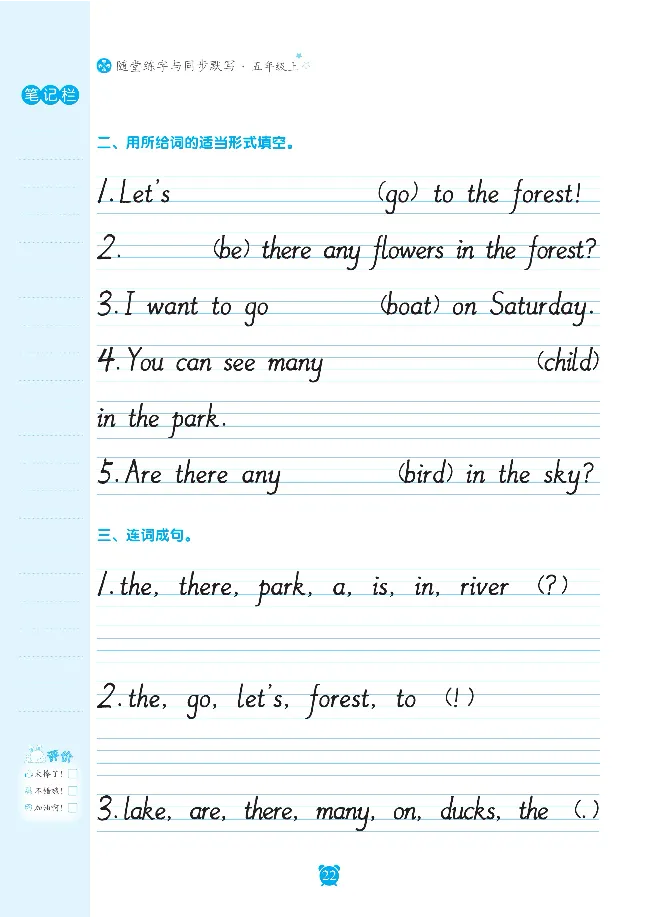 随堂练字与同步默写·五年级上
笔记栏
二、用所给词的适当形式填空。
1. Let's (go) to the forest!
2. (be) there any flowers in the forest?
3. I want to go (boat) on Saturday.
4. You can see many (child)
in the park.
5. Are there any (bird) in the sky?
三、连词成句。
1. the, there, park, a, is, in, river (?)
2. the, go, let's, forest, to (!)
3. lake, are, there, many, on, ducks, the (.)
评价
太棒了!
不错哦!
加油啊!
22